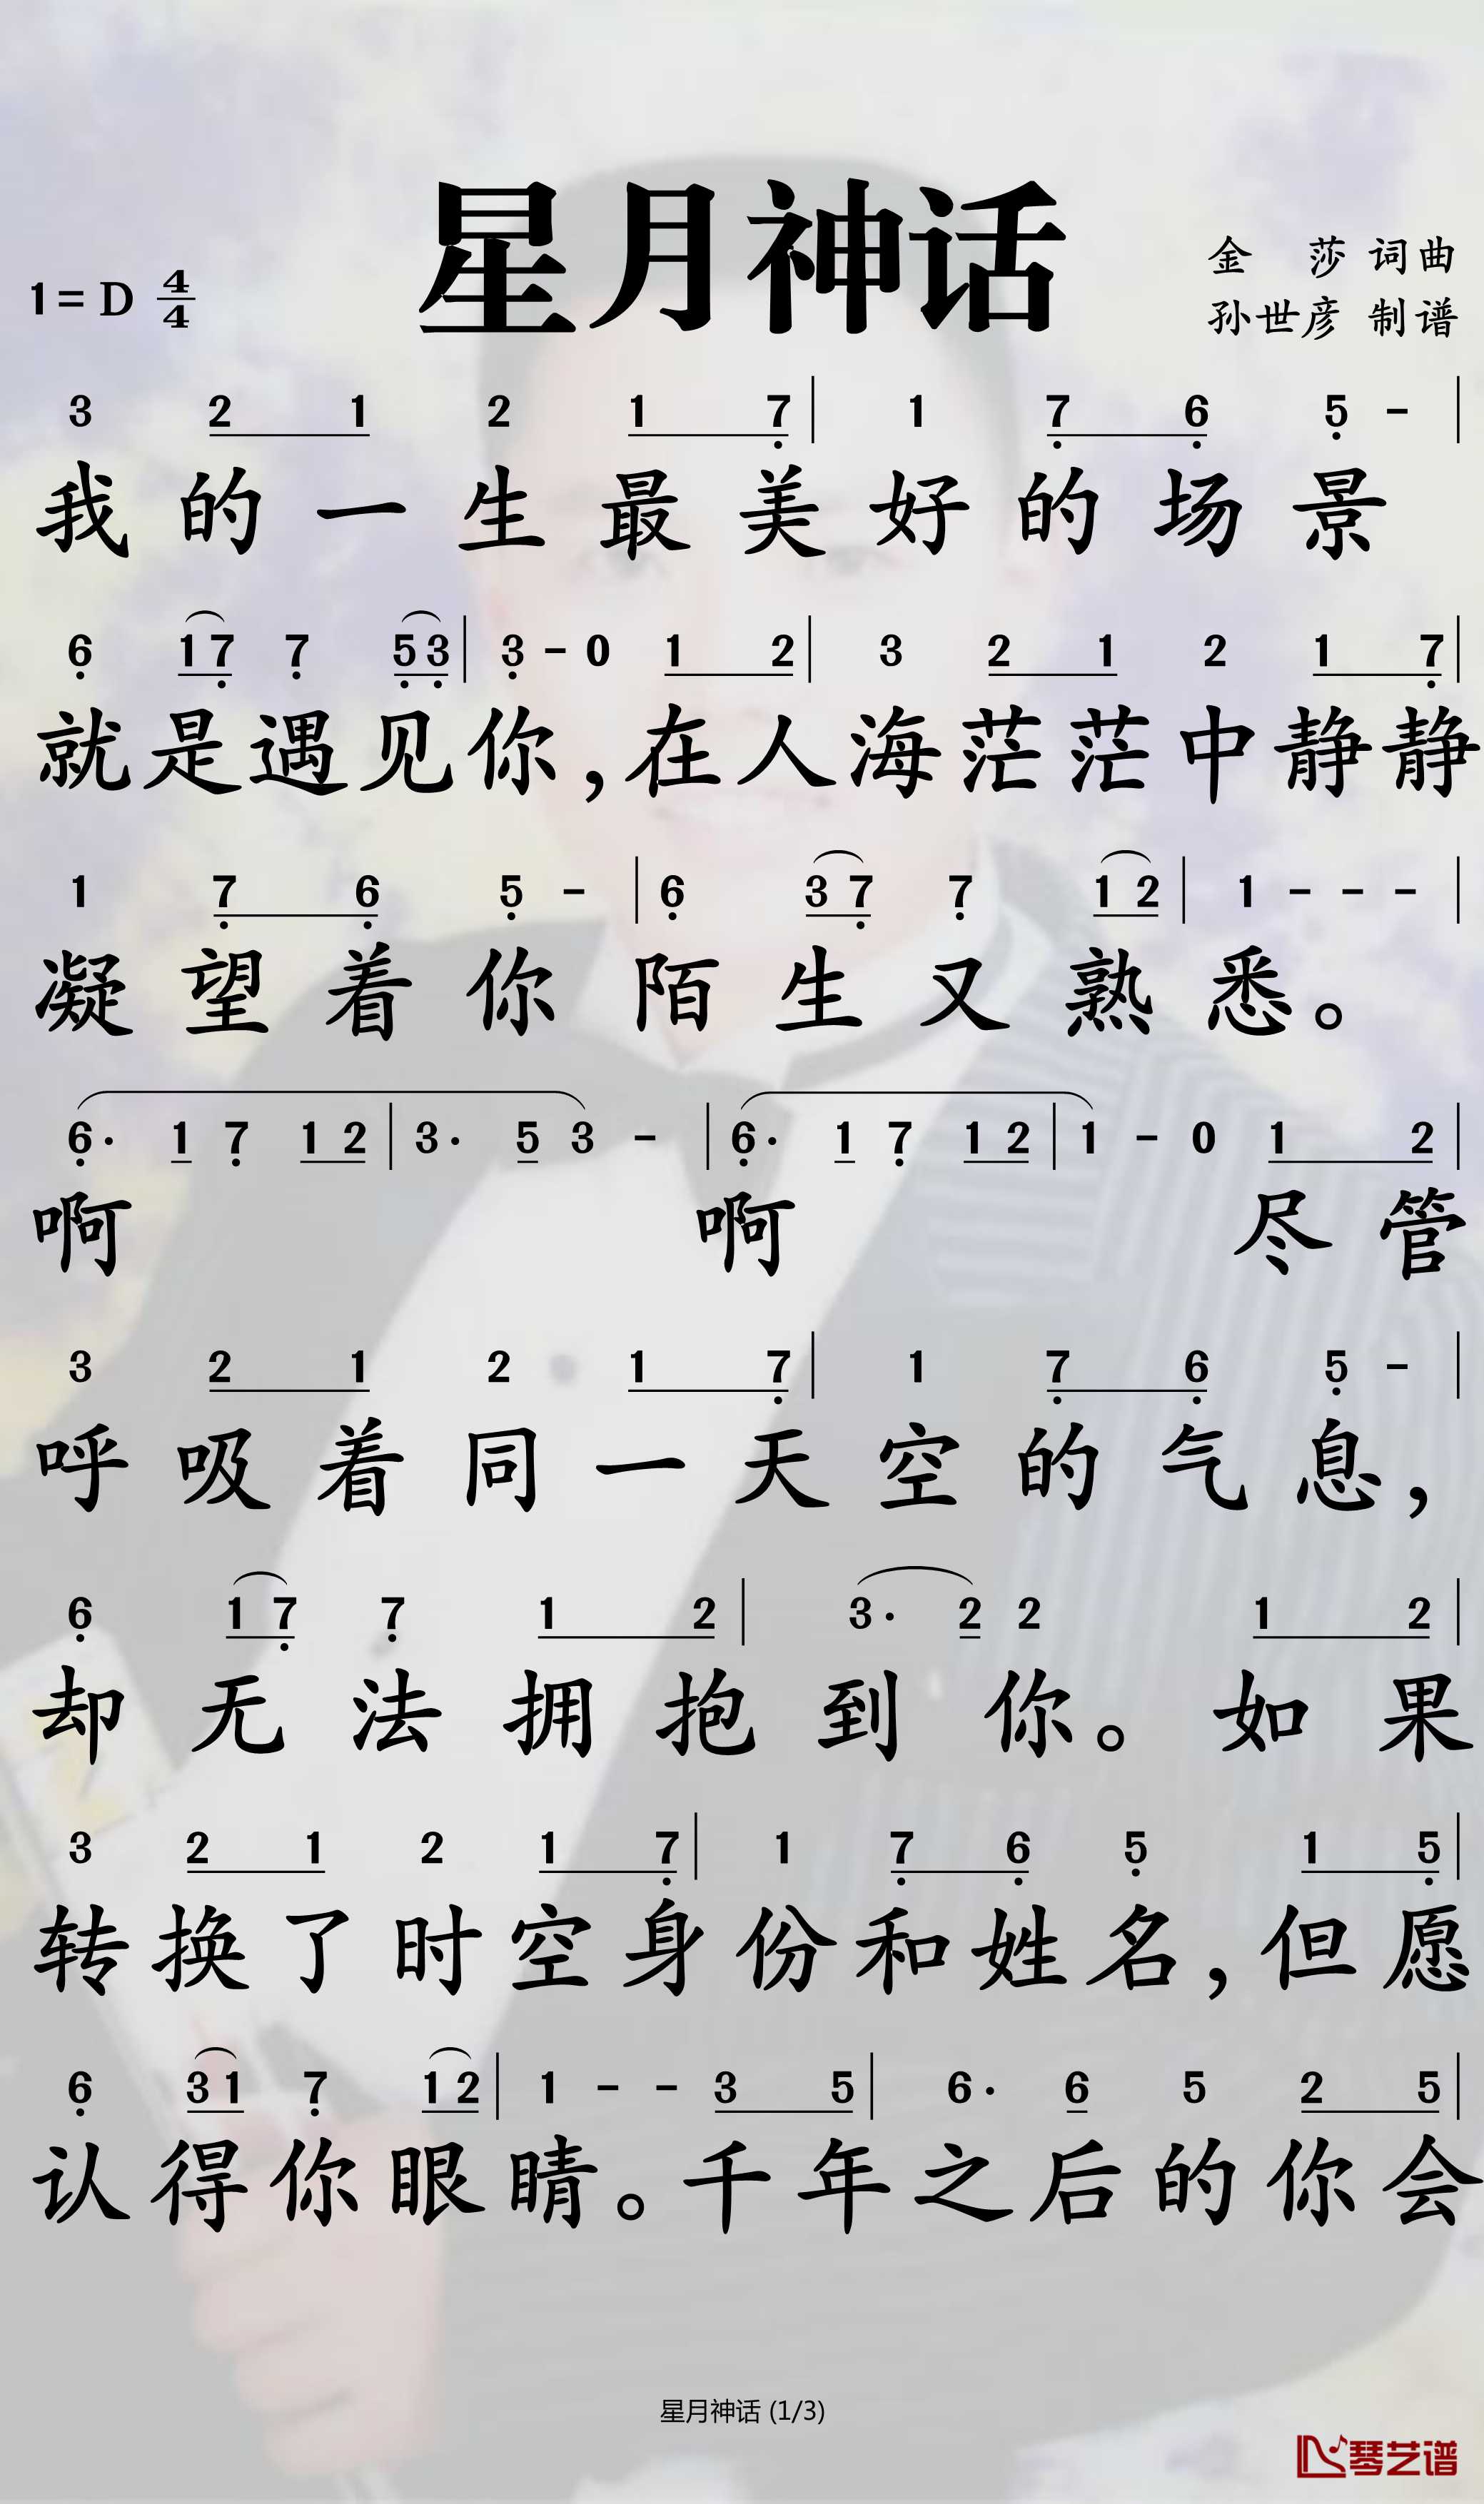 星月神话
1=D 4/4
金 莎 词曲
孙世彦 制谱
3 2 1 2 1 7̣ | 1 7̣ 6̣ 5̣ - |
我的一生最美好的场景
6̣ 1 7̣ 7̣ 5̣ 3̣ | 3̣ - 0 1 2 | 3 2 1 2 1 7̣ |
就是遇见你,在人海茫茫中静静
1 7̣ 6̣ 5̣ - | 6̣ 3 7̣ 7̣ 1 2 | 1 - - - |
凝望着你陌生又熟悉。
6̣· 1 7̣ 1 2 | 3· 5 3 - | 6̣· 1 7̣ 1 2 | 1 - 0 1 2 |
啊 啊 尽管
3 2 1 2 1 7̣ | 1 7̣ 6̣ 5̣ - |
呼吸着同一天空的气息,
6̣ 1 7̣ 7̣ 1 2 | 3· 2 2 1 2 |
却无法拥抱到你。如果
3 2 1 2 1 7̣ | 1 7̣ 6̣ 5̣ 1 5̣ |
转换了时空身份和姓名,但愿
6̣ 3 1 7̣ 1 2 | 1 - - 3 5 | 6· 6 5 2 5 |
认得你眼睛。千年之后的你会
星月神话 (1/3)
琴艺谱